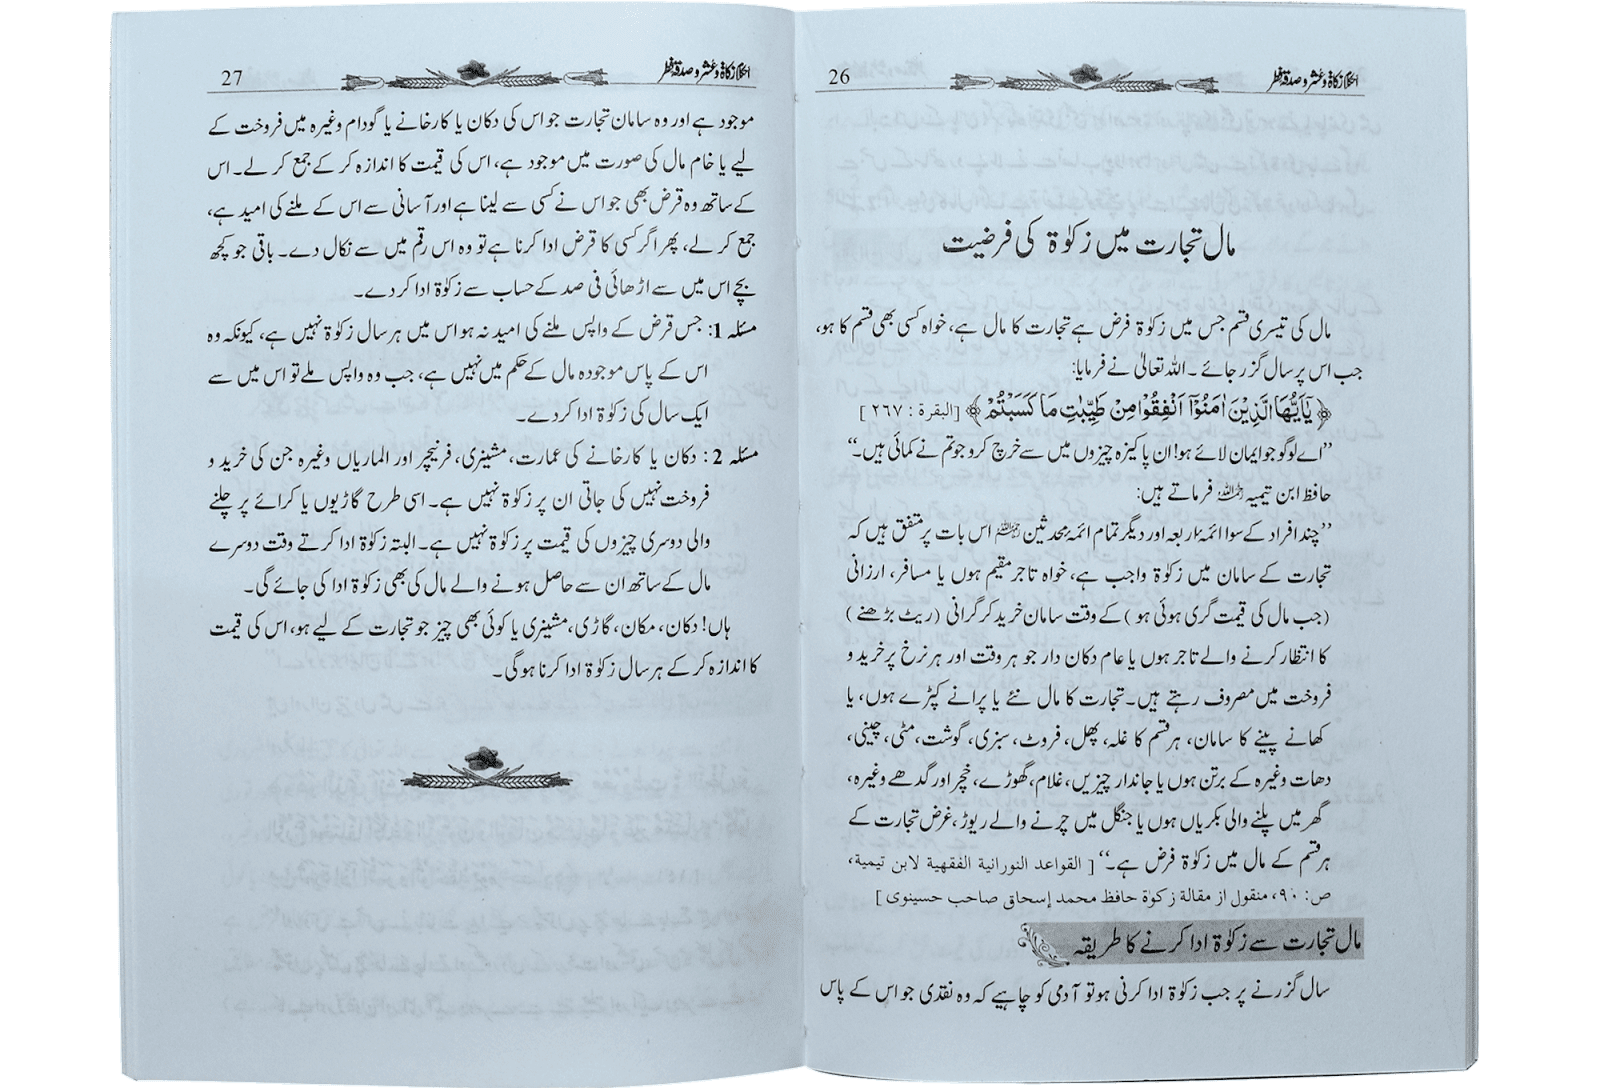 احکام زکاۃ و عشر و صدقہ فطر
26
مال تجارت میں زکوٰۃ کی فرضیت
مال کی تیسری قسم جس میں زکوٰۃ فرض ہے تجارت کا مال ہے، خواہ کسی بھی قسم کا ہو،
جب اس پر سال گزر جائے ۔ اللہ تعالیٰ نے فرمایا:
﴿ يٰۤاَيُّهَا الَّذِيْنَ اٰمَنُوْۤا اَنْفِقُوْا مِنْ طَيِّبٰتِ مَا كَسَبْتُمْ ﴾ [البقرة : ٢٦٧ ]
’’اے لوگو جو ایمان لائے ہو! ان پاکیزہ چیزوں میں سے خرچ کرو جو تم نے کمائی ہیں۔‘‘
حافظ ابن تیمیہ رحمہ اللہ فرماتے ہیں:
’’چند افراد کے سوا ائمہ اربعہ اور دیگر تمام ائمہ محدثین رحمہم اللہ اس بات پر متفق ہیں کہ
تجارت کے سامان میں زکوٰۃ واجب ہے، خواہ تاجر مقیم ہوں یا مسافر، ارزانی
(جب مال کی قیمت گری ہوئی ہو ) کے وقت سامان خرید کر گرانی (ریٹ بڑھنے )
کا انتظار کرنے والے تاجر ہوں یا عام دکان دار جو ہر وقت اور ہر نرخ پر خرید و
فروخت میں مصروف رہتے ہیں۔ تجارت کا مال نئے یا پرانے کپڑے ہوں، یا
کھانے پینے کا سامان، ہر قسم کا غلہ، پھل، فروٹ، سبزی، گوشت، مٹی، چینی،
دھات وغیرہ کے برتن ہوں یا جاندار چیزیں، غلام، گھوڑے، خچر اور گدھے وغیرہ،
گھر میں پلنے والی بکریاں ہوں یا جنگل میں چرنے والے ریوڑ، غرض تجارت کے
ہر قسم کے مال میں زکوٰۃ فرض ہے۔‘‘ [ القواعد النورانية الفقهية لابن تيمية،
ص: ٩٠، منقول از مقالة زكوٰة حافظ محمد إسحاق صاحب حسينوى ]
مال تجارت سے زکوٰۃ ادا کرنے کا طریقہ
سال گزرنے پر جب زکوٰۃ ادا کرنی ہو تو آدمی کو چاہیے کہ وہ نقدی جو اس کے پاس
احکام زکاۃ و عشر و صدقہ فطر
27
موجود ہے اور وہ سامان تجارت جو اس کی دکان یا کارخانے یا گودام وغیرہ میں فروخت کے
لیے یا خام مال کی صورت میں موجود ہے، اس کی قیمت کا اندازہ کر کے جمع کر لے۔ اس
کے ساتھ وہ قرض بھی جو اس نے کسی سے لینا ہے اور آسانی سے اس کے ملنے کی امید ہے،
جمع کر لے، پھر اگر کسی کا قرض ادا کرنا ہے تو وہ اس رقم میں سے نکال دے۔ باقی جو کچھ
بچے اس میں سے اڑھائی فی صد کے حساب سے زکوٰۃ ادا کر دے۔
مسئلہ 1: جس قرض کے واپس ملنے کی امید نہ ہو اس میں ہر سال زکوٰۃ نہیں ہے، کیونکہ وہ
اس کے پاس موجودہ مال کے حکم میں نہیں ہے، جب وہ واپس ملے تو اس میں سے
ایک سال کی زکوٰۃ ادا کر دے۔
مسئلہ 2 : دکان یا کارخانے کی عمارت، مشینری، فرنیچر اور الماریاں وغیرہ جن کی خرید و
فروخت نہیں کی جاتی ان پر زکوٰۃ نہیں ہے۔ اسی طرح گاڑیوں یا کرائے پر چلنے
والی دوسری چیزوں کی قیمت پر زکوٰۃ نہیں ہے۔ البتہ زکوٰۃ ادا کرتے وقت دوسرے
مال کے ساتھ ان سے حاصل ہونے والے مال کی بھی زکوٰۃ ادا کی جائے گی۔
ہاں! دکان، مکان، گاڑی، مشینری یا کوئی بھی چیز جو تجارت کے لیے ہو، اس کی قیمت
کا اندازہ کر کے ہر سال زکوٰۃ ادا کرنا ہوگی۔